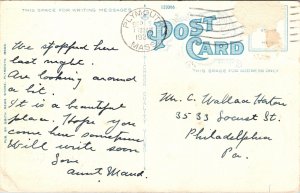 THIS SPACE FOR WRITING MESSAGES
123886
PLYMOUTH
MASS.
POST CARD
THIS SPACE FOR ADDRESS ONLY
We stopped here
last night.
Are looking around
a bit.
It is a beautiful
place. Hope you
come here sometime
Will write soon
Love
Aunt Maud.
Mr. C. Wallace
3533 Locust St.
Philadelphia
Pa.